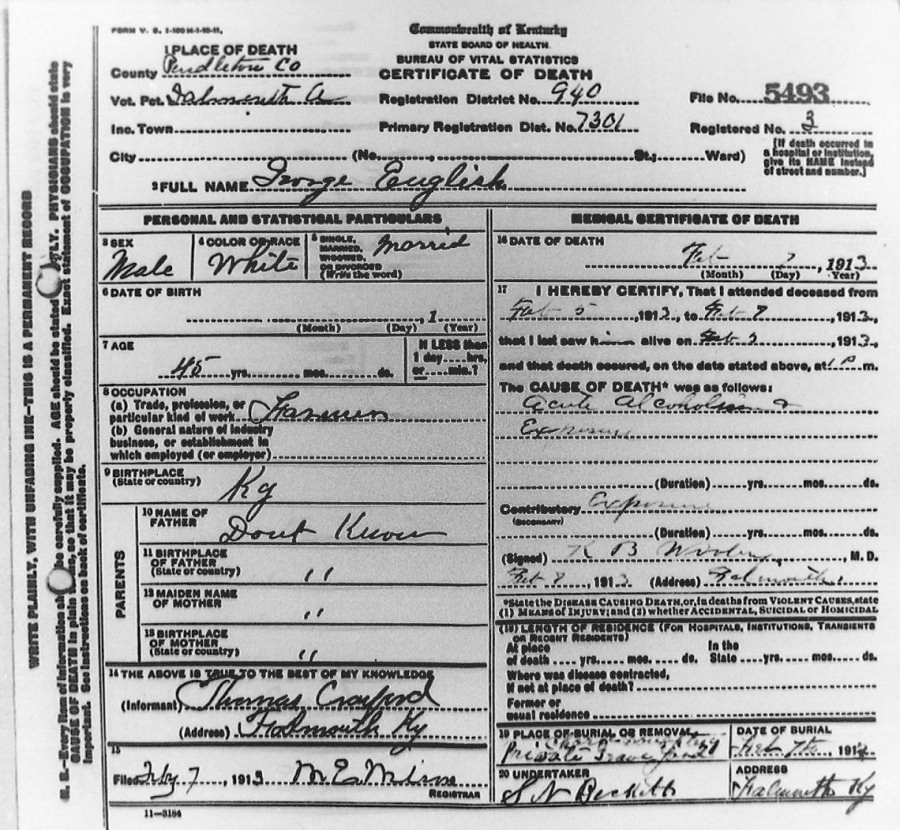 FORM V. S. 1-100 M-1-10-11.
Commonwealth of Kentucky
STATE BOARD OF HEALTH
BUREAU OF VITAL STATISTICS
CERTIFICATE OF DEATH
1 PLACE OF DEATH
County Pendleton Co
Vot. Pct. Falmouth A
Registration District No. 940
File No. 5493
Inc. Town
Primary Registration Dist. No. 7301
Registered No. 3
City (No. , St.; Ward)
[If death occurred in
a hospital or institution,
give its NAME instead
of street and number.]
2 FULL NAME George English
PERSONAL AND STATISTICAL PARTICULARS
3 SEX
Male
4 COLOR OR RACE
White
5 SINGLE,
MARRIED,
WIDOWED,
OR DIVORCED
(Write the word)
Marrid
6 DATE OF BIRTH
, 1
(Month) (Day) (Year)
7 AGE
45 yrs. mos. ds.
If LESS than
1 day hrs.
or min.?
8 OCCUPATION
(a) Trade, profession, or
particular kind of work Farmer
(b) General nature of industry
business, or establishment in
which employed (or employer)
9 BIRTHPLACE
(State or country)
Ky
PARENTS
10 NAME OF
FATHER
Dont Know
11 BIRTHPLACE
OF FATHER
(State or country) ,,
12 MAIDEN NAME
OF MOTHER ,,
13 BIRTHPLACE
OF MOTHER
(State or country) ,,
14 THE ABOVE IS TRUE TO THE BEST OF MY KNOWLEDGE
(Informant) Thomas
(Address) Falmouth Ky
15
Filed Feby 7, 1913
REGISTRAR
11-3184
MEDICAL CERTIFICATE OF DEATH
16 DATE OF DEATH
Feb 7, 1913
(Month) (Day) (Year)
17 I HEREBY CERTIFY, That I attended deceased from
Feb 5, 1913, to Feb , 1913,
that I last saw him alive on Feb , 1913,
and that death occured, on the date stated above, at 1 P m.
The CAUSE OF DEATH* was as follows:
Acute Alcoholism &
Exposure
(Duration) yrs. mos. ds.
Contributory Exposure
(SECONDARY)
(Duration) yrs. mos. ds.
(Signed) K B , M. D.
Feb , 1913 (Address) Falmouth
*State the DISEASE CAUSING DEATH, or, in deaths from VIOLENT CAUSES, state
(1) MEANS OF INJURY; and (2) whether ACCIDENTAL, SUICIDAL or HOMICIDAL
(18) LENGTH OF RESIDENCE (FOR HOSPITALS, INSTITUTIONS, TRANSIENTS
OR RECENT RESIDENTS)
At place In the
of death yrs. mos. ds. State yrs. mos. ds.
Where was disease contracted,
If not at place of death?
Former or
usual residence
19 PLACE OF BURIAL OR REMOVAL
Private Grave yard
DATE OF BURIAL
Feb 7th 191
20 UNDERTAKER
S N Beckett
ADDRESS
Falmouth Ky
WRITE PLAINLY, WITH UNFADING INK—THIS IS A PERMANENT RECORD
N. B.—Every item of information should be carefully supplied. AGE should be stated EXACTLY. PHYSICIANS should state
CAUSE OF DEATH in plain terms, so that it may be properly classified. Exact statement of OCCUPATION is very
important. See instructions on back of certificate.